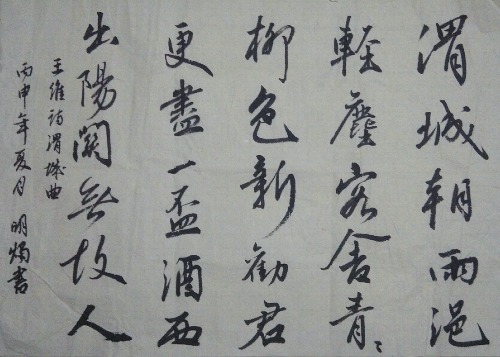 渭城朝雨浥
輕塵客舍青〻
柳色新勸君
更盡一盃酒西
出陽關無故人
王維詩渭城曲
丙申年夏月 明燭書